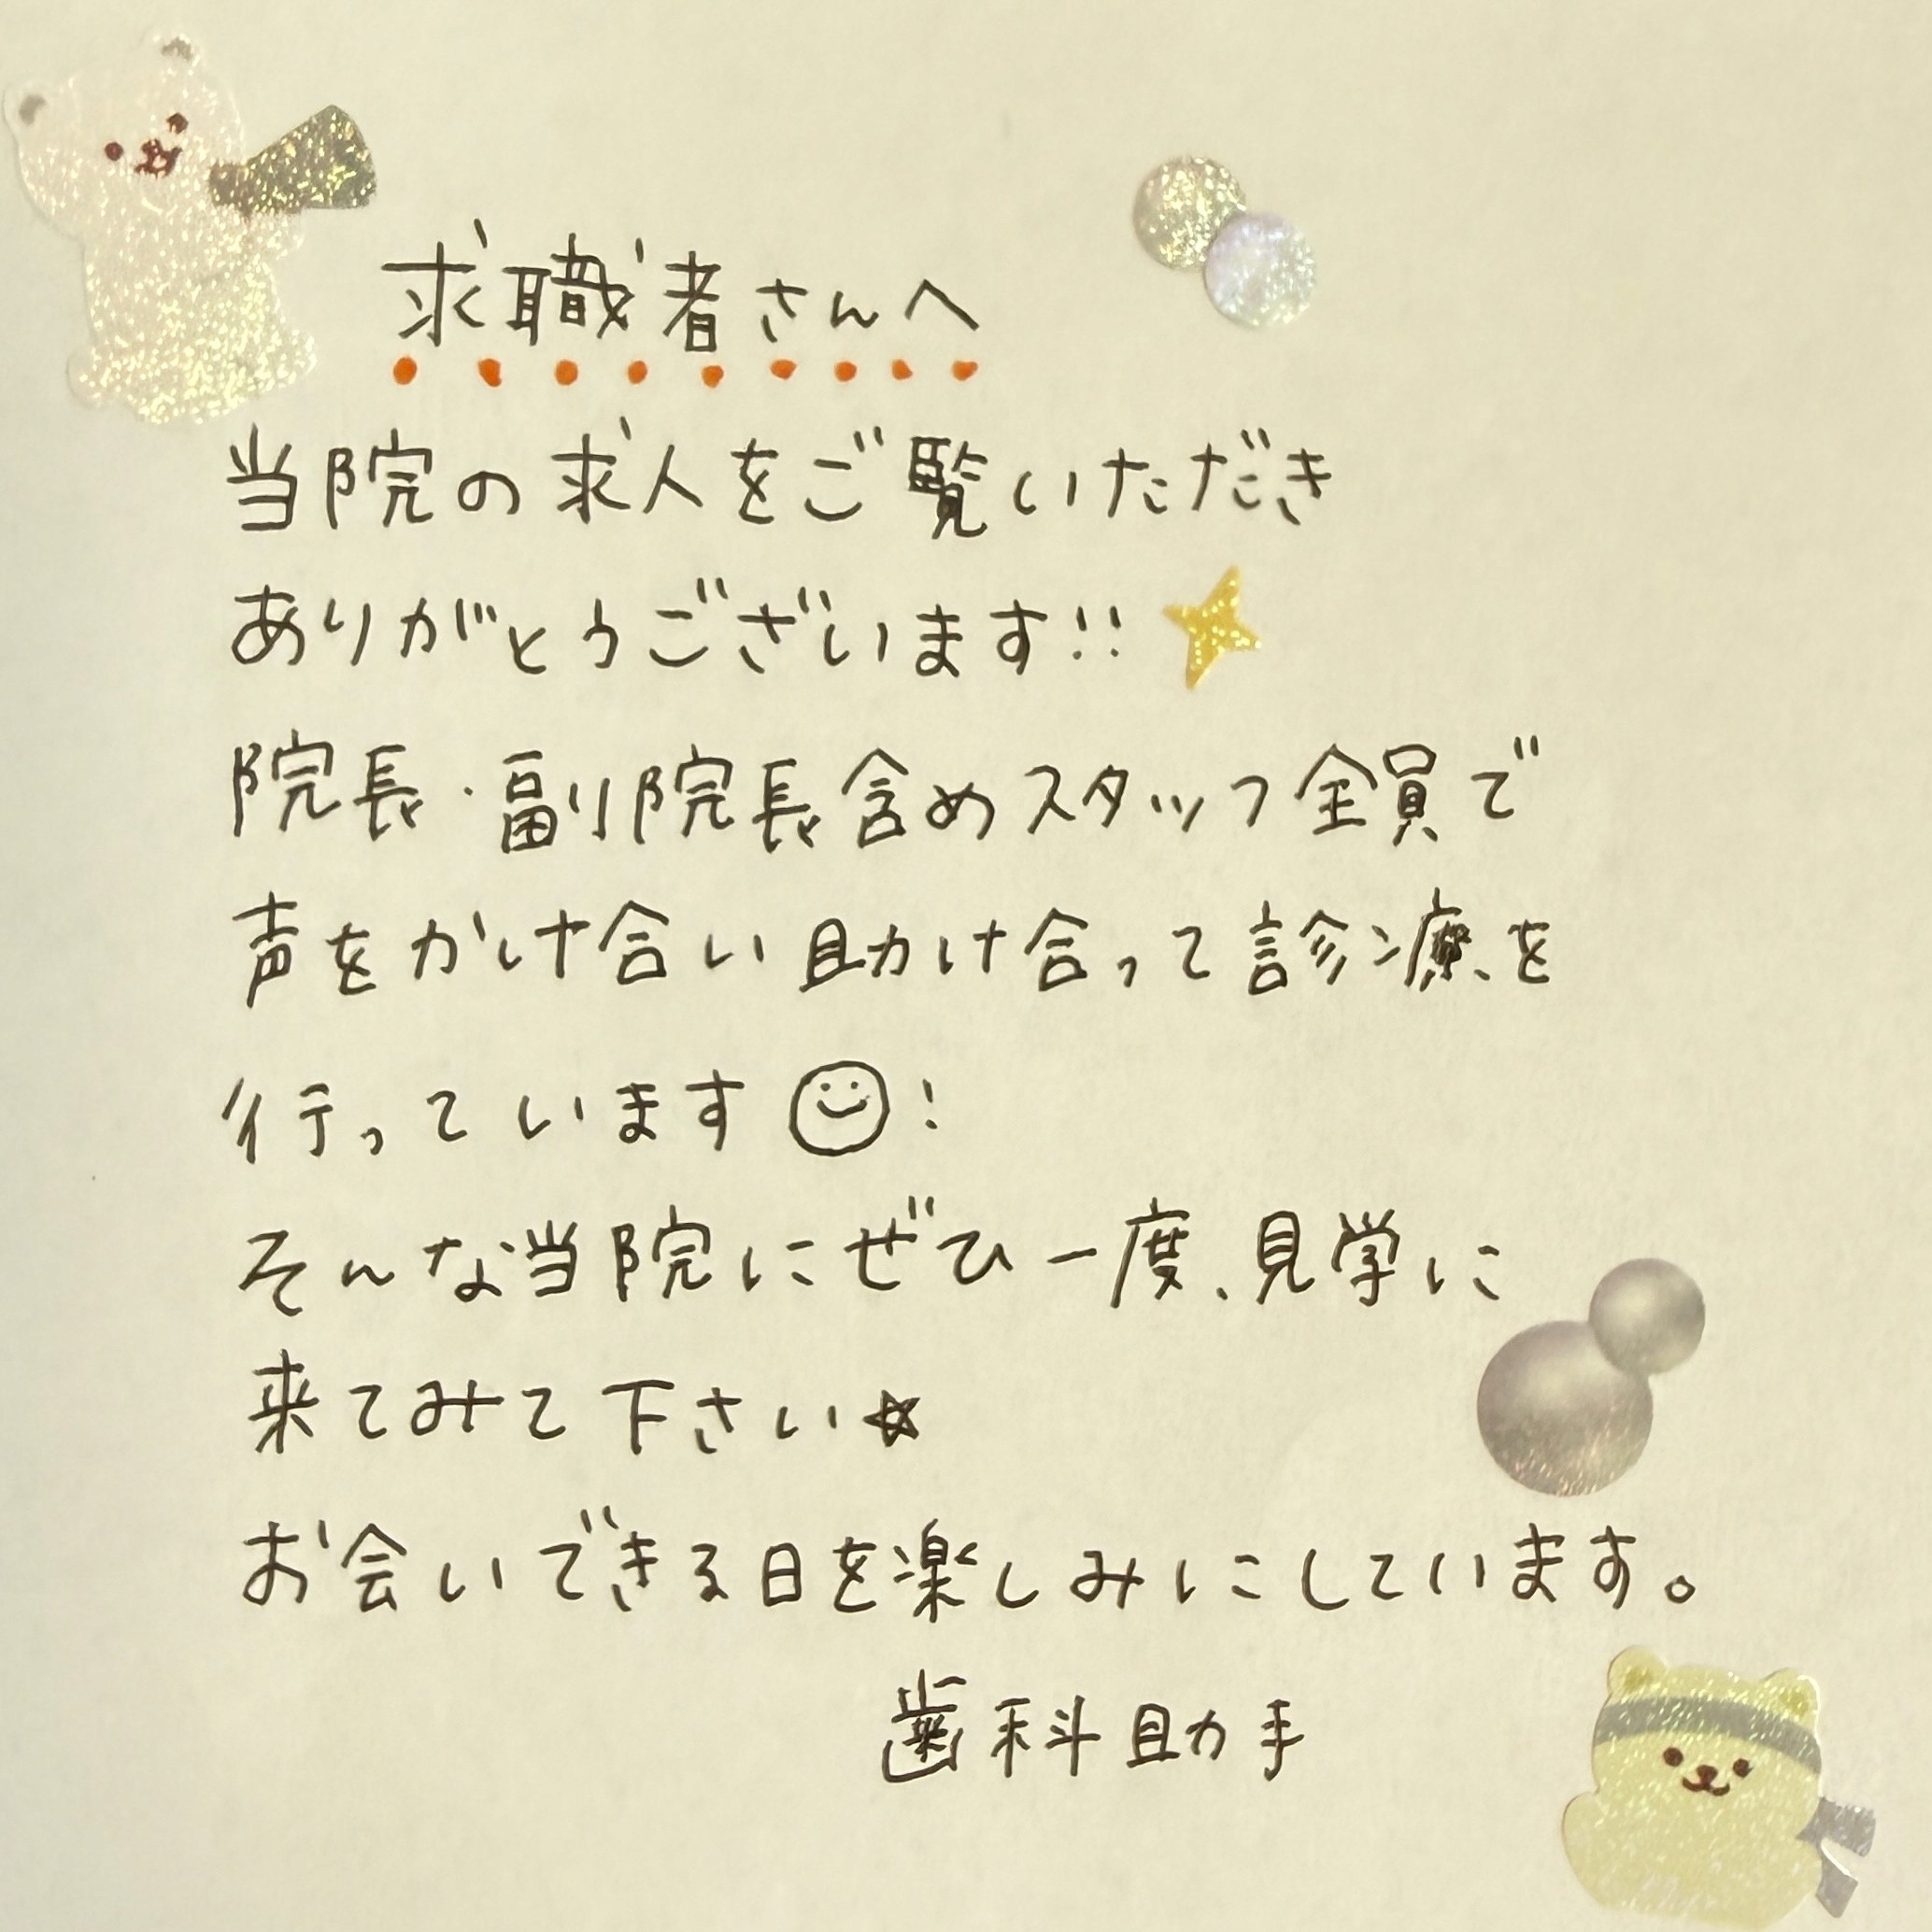 求職者さんへ
当院の求人をご覧いただき
ありがとうございます!!
院長・副院長含めスタッフ全員で
声をかけ合い助け合って診療を
行っています☺!
そんな当院にぜひ一度、見学に
来てみて下さい☆
お会いできる日を楽しみにしています。
歯科助手